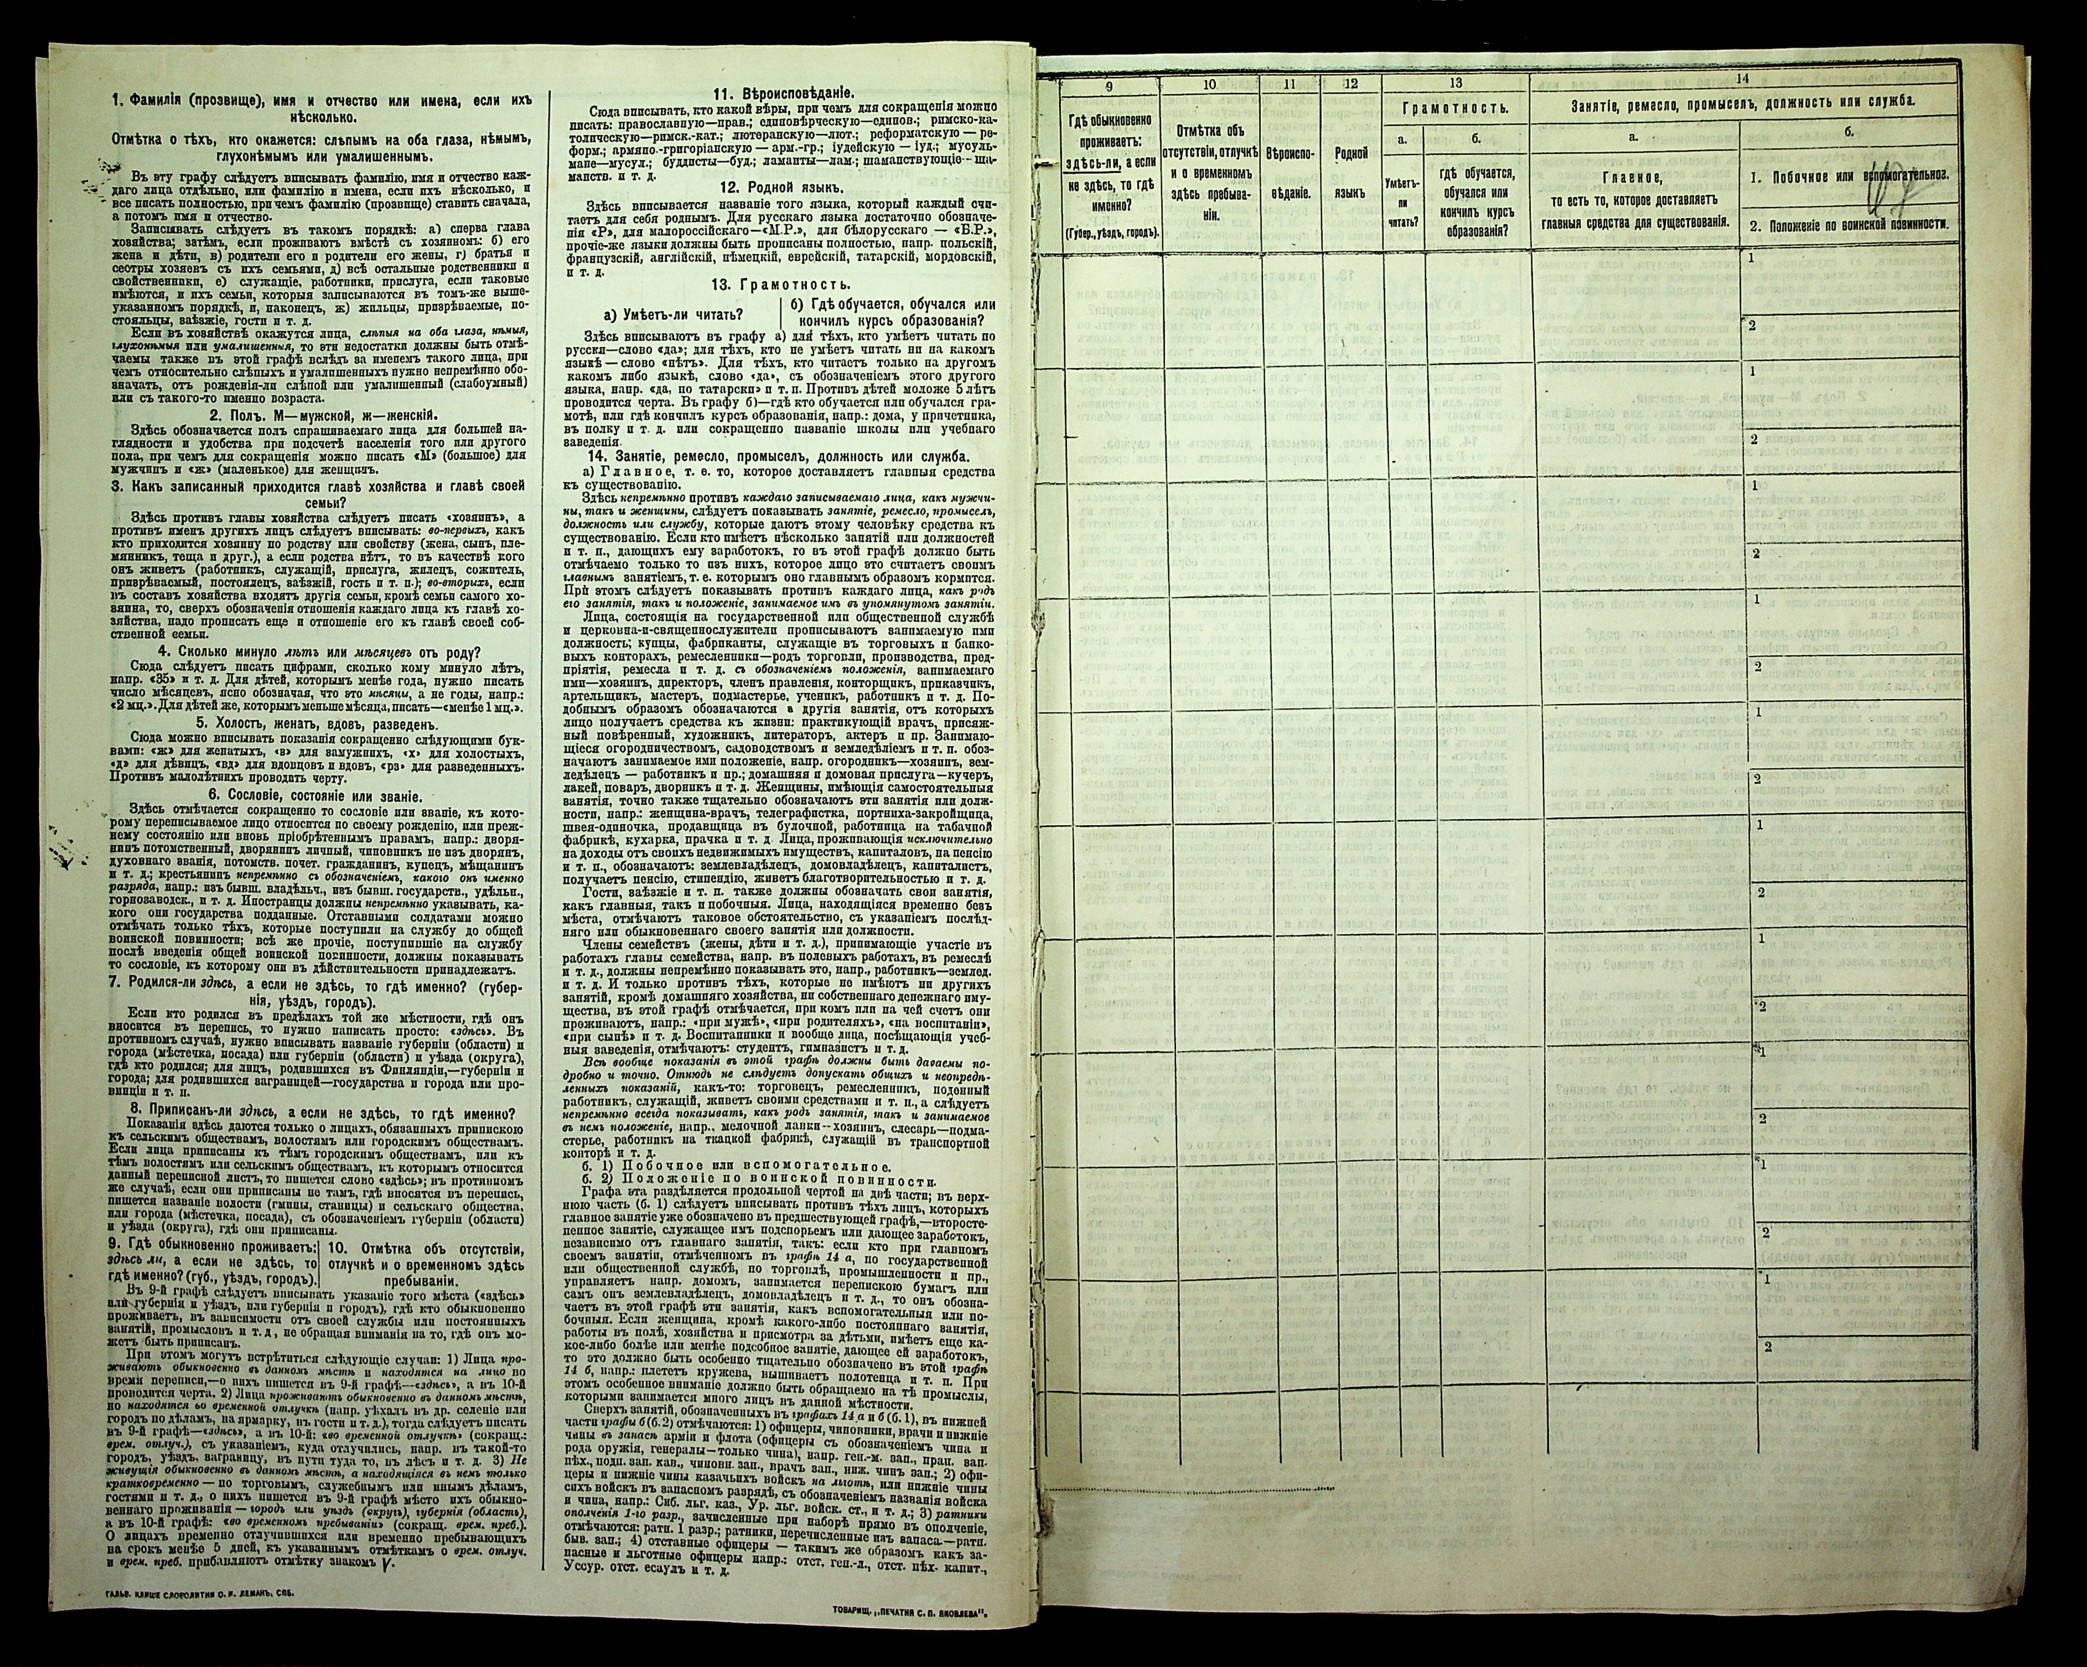 1. Фамилія (прозвище), имя и отчество или имена, если ихъ
нѣсколько.
Отмѣтка о тѣхъ, кто окажется: слѣпымъ на оба глаза, нѣмымъ,
глухонѣмымъ или умалишеннымъ.
Въ эту графу слѣдуетъ вписывать фамилію, имя и отчество каж-
даго лица отдѣльно, или фамилію и имена, если ихъ нѣсколько, и
все писать полностью, при чемъ фамилію (прозвище) ставить сначала,
а потомъ имя и отчество.
Записывать слѣдуетъ въ такомъ порядкѣ: а) сперва глава
хозяйства; затѣмъ, если проживаютъ вмѣстѣ съ хозяиномъ: б) его
жена и дѣти, в) родители его и родители его жены, г) братья и
сестры хозяевъ съ ихъ семьями, д) всѣ остальные родственники и
свойственники, е) служащіе, работники, прислуга, если таковые
имѣются, и ихъ семьи, которыя записываются въ томъ-же выше-
указанномъ порядкѣ, и, наконецъ, ж) жильцы, призрѣваемые, по-
стояльцы, заѣзжіе, гости и т. д.
Если въ хозяйствѣ окажутся лица, слѣпыя на оба глаза, нѣмыя,
глухонѣмыя или умалишенныя, то эти недостатки должны быть отмѣ-
чаемы также въ этой графѣ вслѣдъ за именемъ такого лица, при
чемъ относительно слѣпыхъ и умалишенныхъ нужно непремѣнно обо-
значать, отъ рожденія-ли слѣпой или умалишенный (слабоумный)
или съ такого-то именно возраста.
2. Полъ. М—мужской, ж—женскій.
Здѣсь обозначается полъ спрашиваемаго лица для большей на-
глядности и удобства при подсчетѣ населенія того или другого
пола, при чемъ для сокращенія можно писать «М» (большое) для
мужчинъ и «ж» (маленькое) для женщинъ.
3. Какъ записанный приходится главѣ хозяйства и главѣ своей
семьи?
Здѣсь противъ главы хозяйства слѣдуетъ писать «хозяинъ», а
противъ именъ другихъ лицъ слѣдуетъ вписывать: во-первыхъ, какъ
кто приходится хозяину по родству или свойству (жена, сынъ, пле-
мянникъ, теща и друг.), а если родства нѣтъ, то въ качествѣ кого
онъ живетъ (работникъ, служащій, прислуга, жилецъ, сожитель,
призрѣваемый, постоялецъ, заѣзжій, гость и т. п.); во-вторыхъ, если
въ составъ хозяйства входятъ другія семьи, кромѣ семьи самого хо-
зяина, то, сверхъ обозначенія отношенія каждаго лица къ главѣ хо-
зяйства, надо прописать еще и отношеніе его къ главѣ своей соб-
ственной семьи.
4. Сколько минуло лѣтъ или мѣсяцевъ отъ роду?
Сюда слѣдуетъ писать цифрами, сколько кому минуло лѣтъ,
напр. «35» и т. д. Для дѣтей, которымъ менѣе года, нужно писать
число мѣсяцевъ, ясно обозначая, что это мѣсяцы, а не годы, напр.:
«2 мц.». Для дѣтей же, которымъ меньше мѣсяца, писать—«менѣе 1 мц.».
5. Холостъ, женатъ, вдовъ, разведенъ.
Сюда можно вписывать показанія сокращенно слѣдующими бук-
вами: «ж» для женатыхъ, «з» для замужнихъ, «х» для холостыхъ,
«д» для дѣвицъ, «вд» для вдовцовъ и вдовъ, «рз» для разведенныхъ.
Противъ малолѣтнихъ проводить черту.
6. Сословіе, состояніе или званіе.
Здѣсь отмѣчается сокращенно то сословіе или званіе, къ кото-
рому переписываемое лицо относится по своему рожденію, или преж-
нему состоянію или вновь пріобрѣтеннымъ правамъ, напр.: дворя-
нинъ потомственный, дворянинъ личный, чиновникъ не изъ дворянъ,
духовнаго званія, потомств. почет. гражданинъ, купецъ, мѣщанинъ
и т. д.; крестьянинъ непремѣнно съ обозначеніемъ, какого онъ именно
разряда, напр.: изъ бывш. владѣльч., изъ бывш. государств., удѣльн.,
горнозаводск., и т. д. Иностранцы должны непремѣнно указывать, ка-
кого они государства подданные. Отставными солдатами можно
отмѣчать только тѣхъ, которые поступили на службу до общей
воинской повинности; всѣ же прочіе, поступившіе на службу
послѣ введенія общей воинской повинности, должны показывать
то сословіе, къ которому они въ дѣйствительности принадлежатъ.
7. Родился-ли здѣсь, а если не здѣсь, то гдѣ именно? (губер-
нія, уѣздъ, городъ).
Если кто родился въ предѣлахъ той же мѣстности, гдѣ онъ
вносится въ перепись, то нужно написать просто: «здѣсь». Въ
противномъ случаѣ, нужно вписывать названіе губерніи (области) и
города (мѣстечка, посада) или губерніи (области) и уѣзда (округа),
гдѣ кто родился; для лицъ, родившихся въ Финляндіи,—губерніи и
города; для родившихся заграницей—государства и города или про-
винціи и т. п.
8. Приписанъ-ли здѣсь, а если не здѣсь, то гдѣ именно?
Показанія здѣсь даются только о лицахъ, обязанныхъ припискою
къ сельскимъ обществамъ, волостямъ или городскимъ обществамъ.
Если лица приписаны къ тѣмъ городскимъ обществамъ, или къ
тѣмъ волостямъ или сельскимъ обществамъ, къ которымъ относится
данный переписной листъ, то пишется слово «здѣсь»; въ противномъ
же случаѣ, если они приписаны не тамъ, гдѣ вносятся въ перепись,
пишется названіе волости (гмины, станицы) и сельскаго общества,
или города (мѣстечка, посада), съ обозначеніемъ губерніи (области)
и уѣзда (округа), гдѣ они приписаны.
9. Гдѣ обыкновенно проживаетъ:
здѣсь ли, а если не здѣсь, то
гдѣ именно? (губ., уѣздъ, городъ).
10. Отмѣтка объ отсутствіи,
отлучкѣ и о временномъ здѣсь
пребываніи.
Въ 9-й графѣ слѣдуетъ вписывать указаніе того мѣста («здѣсь»
или губернія и уѣздъ, или губернія и городъ), гдѣ кто обыкновенно
проживаетъ, въ зависимости отъ своей службы или постоянныхъ
занятій, промысловъ и т. д, не обращая вниманія на то, гдѣ онъ мо-
жетъ быть приписанъ.
При этомъ могутъ встрѣтиться слѣдующіе случаи: 1) Лица про-
живаютъ обыкновенно въ данномъ мѣстѣ и находятся на лицо во
время переписи,—о нихъ пишется въ 9-й графѣ—«здѣсь», а въ 10-й
проводится черта. 2) Лица проживаютъ обыкновенно въ данномъ мѣстѣ,
но находятся во временной отлучкѣ (напр. уѣхалъ въ др. селеніе или
городъ по дѣламъ, на ярмарку, въ гости и т. д.), тогда слѣдуетъ писать
въ 9-й графѣ—«здѣсь», а въ 10-й: «во временной отлучкѣ» (сокращ.:
врем. отлуч.), съ указаніемъ, куда отлучились, напр. въ такой-то
городъ, уѣздъ, заграницу, въ пути туда то, въ лѣсъ и т. д. 3) Не
живущія обыкновенно въ данномъ мѣстѣ, а находящіяся въ немъ только
кратковременно — по торговымъ, служебнымъ или инымъ дѣламъ,
гостями и т. д., о нихъ пишется въ 9-й графѣ мѣсто ихъ обыкно-
веннаго проживанія — городъ или уѣздъ (округъ), губернія (область),
а въ 10-й графѣ: «во временномъ пребываніи» (сокращ. врем. преб.).
О лицахъ временно отлучившихся или временно пребывающихъ
на срокъ менѣе 5 дней, къ указаннымъ отмѣткамъ о врем. отлуч.
и врем. преб. прибавляютъ отмѣтку знакомъ V.
ГАЛЬВ. КЛИШЕ СЛОВОЛИТНИ О. И. ЛЕМАНЪ, СПБ.
11. Вѣроисповѣданіе.
Сюда вписывать, кто какой вѣры, при чемъ для сокращенія можно
писать: православную—прав.; единовѣрческую—единов.; римско-ка-
толическую—римск.-кат.; лютеранскую—лют.; реформатскую — ре-
форм.; армяно.-григоріанскую — арм.-гр.; іудейскую — іуд.; мусуль-
мане—мусул.; буддисты—буд.; ламаиты—лам.; шаманствующіе—ша-
манств. и т. д.
12. Родной языкъ.
Здѣсь вписывается названіе того языка, который каждый счи-
таетъ для себя роднымъ. Для русскаго языка достаточно обозначе-
нія «Р», для малороссійскаго—«М.Р.», для бѣлорусскаго — «Б.Р.»,
прочіе-же языки должны быть прописаны полностью, напр. польскій,
французскій, англійскій, нѣмецкій, еврейскій, татарскій, мордовскій,
и т. д.
13. Грамотность.
а) Умѣетъ-ли читать?
б) Гдѣ обучается, обучался или
кончилъ курсъ образованія?
Здѣсь вписываютъ въ графу а) для тѣхъ, кто умѣетъ читать по
русски—слово «да»; для тѣхъ, кто не умѣетъ читать ни на какомъ
языкѣ — слово «нѣтъ». Для тѣхъ, кто читаетъ только на другомъ
какомъ либо языкѣ, слово «да», съ обозначеніемъ этого другого
языка, напр. «да, по татарски» и т. п. Противъ дѣтей моложе 5 лѣтъ
проводится черта. Въ графу б)—гдѣ кто обучается или обучался гра-
мотѣ, или гдѣ кончилъ курсъ образованія, напр.: дома, у причетника,
въ полку и т. д. или сокращенно названіе школы или учебнаго
заведенія.
14. Занятіе, ремесло, промыселъ, должность или служба.
а) Главное, т. е. то, которое доставляетъ главныя средства
къ существованію.
Здѣсь непремѣнно противъ каждаго записываемаго лица, какъ мужчи-
ны, такъ и женщины, слѣдуетъ показывать занятіе, ремесло, промыселъ,
должность или службу, которые даютъ этому человѣку средства къ
существованію. Если кто имѣетъ нѣсколько занятій или должностей
и т. п., дающихъ ему заработокъ, то въ этой графѣ должно быть
отмѣчаемо только то изъ нихъ, которое лицо это считаетъ своимъ
главнымъ занятіемъ, т. е. которымъ оно главнымъ образомъ кормится.
При этомъ слѣдуетъ показывать противъ каждаго лица, какъ родъ
его занятія, такъ и положеніе, занимаемое имъ въ упомянутомъ занятіи.
Лица, состоящія на государственной или общественной службѣ
и церковно-и-священнослужители прописываютъ занимаемую ими
должность; купцы, фабриканты, служащіе въ торговыхъ и банко-
выхъ конторахъ, ремесленники—родъ торговли, производства, пред-
пріятія, ремесла и т. д. съ обозначеніемъ положенія, занимаемаго
ими—хозяинъ, директоръ, членъ правленія, конторщикъ, приказчикъ,
артельщикъ, мастеръ, подмастерье, ученикъ, работникъ и т. д. По-
добнымъ образомъ обозначаются и другія занятія, отъ которыхъ
лицо получаетъ средства къ жизни: практикующій врачъ, присяж-
ный повѣренный, художникъ, литераторъ, актеръ и пр. Занимаю-
щіеся огородничествомъ, садоводствомъ и земледѣліемъ и т. п. обоз-
начаютъ занимаемое ими положеніе, напр. огородникъ—хозяинъ, зем-
ледѣлецъ — работникъ и пр.; домашняя и домовая прислуга—кучеръ,
лакей, поваръ, дворникъ и т. д. Женщины, имѣющія самостоятельныя
занятія, точно также тщательно обозначаютъ эти занятія или долж-
ности, напр.: женщина-врачъ, телеграфистка, портниха-закройщица,
швея-одиночка, продавщица въ булочной, работница на табачной
фабрикѣ, кухарка, прачка и т. д. Лица, проживающія исключительно
на доходы отъ своихъ недвижимыхъ имуществъ, капиталовъ, на пенсію
и т. п., обозначаютъ: землевладѣлецъ, домовладѣлецъ, капиталистъ,
получаетъ пенсію, стипендію, живетъ благотворительностью и т. д.
Гости, заѣзжіе и т. п. также должны обозначать свои занятія,
какъ главныя, такъ и побочныя. Лица, находящіяся временно безъ
мѣста, отмѣчаютъ таковое обстоятельство, съ указаніемъ послѣд-
няго или обыкновеннаго своего занятія или должности.
Члены семействъ (жены, дѣти и т. д.), принимающіе участіе въ
работахъ главы семейства, напр. въ полевыхъ работахъ, въ ремеслѣ
и т. д., должны непремѣнно показывать это, напр., работникъ—землед.
и т. д. И только противъ тѣхъ, которые не имѣютъ ни другихъ
занятій, кромѣ домашняго хозяйства, ни собственнаго денежнаго иму-
щества, въ этой графѣ отмѣчается, при комъ или на чей счетъ они
проживаютъ, напр.: «при мужѣ», «при родителяхъ», «на воспитаніи»,
«при сынѣ» и т. д. Воспитанники и вообще лица, посѣщающія учеб-
ныя заведенія, отмѣчаютъ: студентъ, гимназистъ и т. д.
Всѣ вообще показанія въ этой графѣ должны быть даваемы по-
дробно и точно. Отнюдь не слѣдуетъ допускать общихъ и неопредѣ-
ленныхъ показаній, какъ-то: торговецъ, ремесленникъ, поденный
работникъ, служащій, живетъ своими средствами и т. п., а слѣдуетъ
непремѣнно всегда показывать, какъ родъ занятія, такъ и занимаемое
въ немъ положеніе, напр., мелочной лавки--хозяинъ, слесарь—подма-
стерье, работникъ на ткацкой фабрикѣ, служащій въ транспортной
конторѣ и т. д.
б. 1) Побочное или вспомогательное.
б. 2) Положеніе по воинской повинности.
Графа эта раздѣляется продольной чертой на двѣ части; въ верх-
нюю часть (б. 1) слѣдуетъ вписывать противъ тѣхъ лицъ, которыхъ
главное занятіе уже обозначено въ предшествующей графѣ,—второсте-
пенное занятіе, служащее имъ подспорьемъ или дающее заработокъ,
независимо отъ главнаго занятія, такъ: если кто при главномъ
своемъ занятіи, отмѣченномъ въ графѣ 14 а, по государственной
или общественной службѣ, по торговлѣ, промышленности и пр.,
управляетъ напр. домомъ, занимается перепискою бумагъ или
самъ онъ землевладѣлецъ, домовладѣлецъ и т. д., то онъ обозна-
чаетъ въ этой графѣ эти занятія, какъ вспомогательныя или по-
бочныя. Если женщина, кромѣ какого-либо постояннаго занятія,
работы въ полѣ, хозяйства и присмотра за дѣтьми, имѣетъ еще ка-
кое-либо болѣе или менѣе подсобное занятіе, дающее ей заработокъ,
то это должно быть особенно тщательно обозначено въ этой графѣ
14 б, напр.: плететъ кружева, вышиваетъ полотенца и т. п. При
этомъ особенное вниманіе должно быть обращаемо на тѣ промыслы,
которыми занимается много лицъ въ данной мѣстности.
Сверхъ занятій, обозначенныхъ въ графахъ 14 а и б (б. 1), въ нижней
части графы б (б. 2) отмѣчаются: 1) офицеры, чиновники, врачи и нижніе
чины въ запасѣ арміи и флота (офицеры съ обозначеніемъ чина и
рода оружія, генералы—только чина), напр. ген.-м. зап., прап. зап.
пѣх., подп. зап. кав., чиновн. зап., врачъ зап., ниж. чинъ зап.; 2) офи-
церы и нижніе чины казачьихъ войскъ на льготѣ, или нижніе чины
сихъ войскъ въ запасномъ разрядѣ, съ обозначеніемъ названія войска
и чина, напр.: Сиб. льг. каз., Ур. льг. войск. ст., и т. д.; 3) ратники
ополченія 1-го разр., зачисленные при наборѣ прямо въ ополченіе,
отмѣчаются: ратн. 1 разр.; ратники, перечисленные изъ запаса.—ратн.
быв. зап.; 4) отставные офицеры — такимъ же образомъ какъ за-
пасные и льготные офицеры напр.: отст. ген.-л., отст. пѣх. капит.,
Уссур. отст. есаулъ и т. д.
ТОВАРИЩ. „ПЕЧАТНЯ С. П. ЯКОВЛЕВА“.
9
10
11
12
13
14
Гдѣ обыкновенно
проживаетъ:
здѣсь-ли, а если
не здѣсь, то гдѣ
именно?
(Губер., уѣздъ, городъ).
Отмѣтка объ
отсутствіи, отлучкѣ
и о временномъ
здѣсь пребыва-
ніи.
Вѣроиспо-
вѣданіе.
Родной
языкъ
Грамотность.
а.
Умѣетъ-
ли
читать?
б.
гдѣ обучается,
обучался или
кончилъ курсъ
образованія?
Занятіе, ремесло, промыселъ, должность или служба.
а.
Главное,
то есть то, которое доставляетъ
главныя средства для существованія.
б.
1. Побочное или вспомогательное.
2. Положеніе по воинской повинности.
1
2
1
2
1
2
1
2
1
2
1
2
1
2
1
2
1
2
1
2